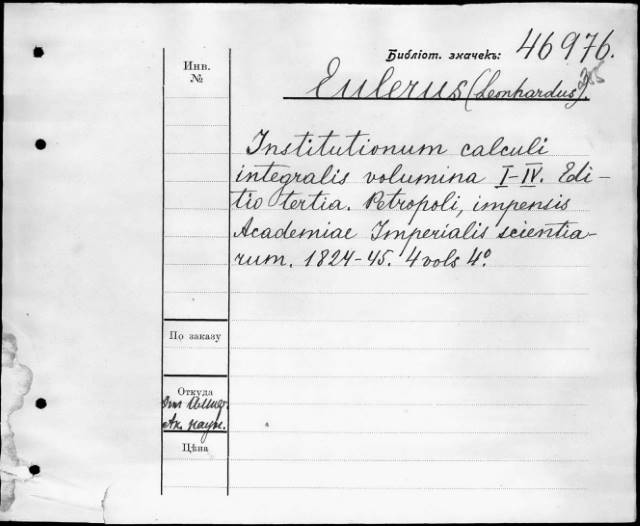 Библіот. значекъ: 46976.
Инв.
№
Eulerus (Leonhardus).
Institutionum calculi
integralis volumina I-IV. Edi-
tio tertia. Petropoli, impensis
Academiae Imperialis scientia-
rum. 1824-45. 4 vols 4º
По заказу
Откуда
Ак. наук.
Цѣна